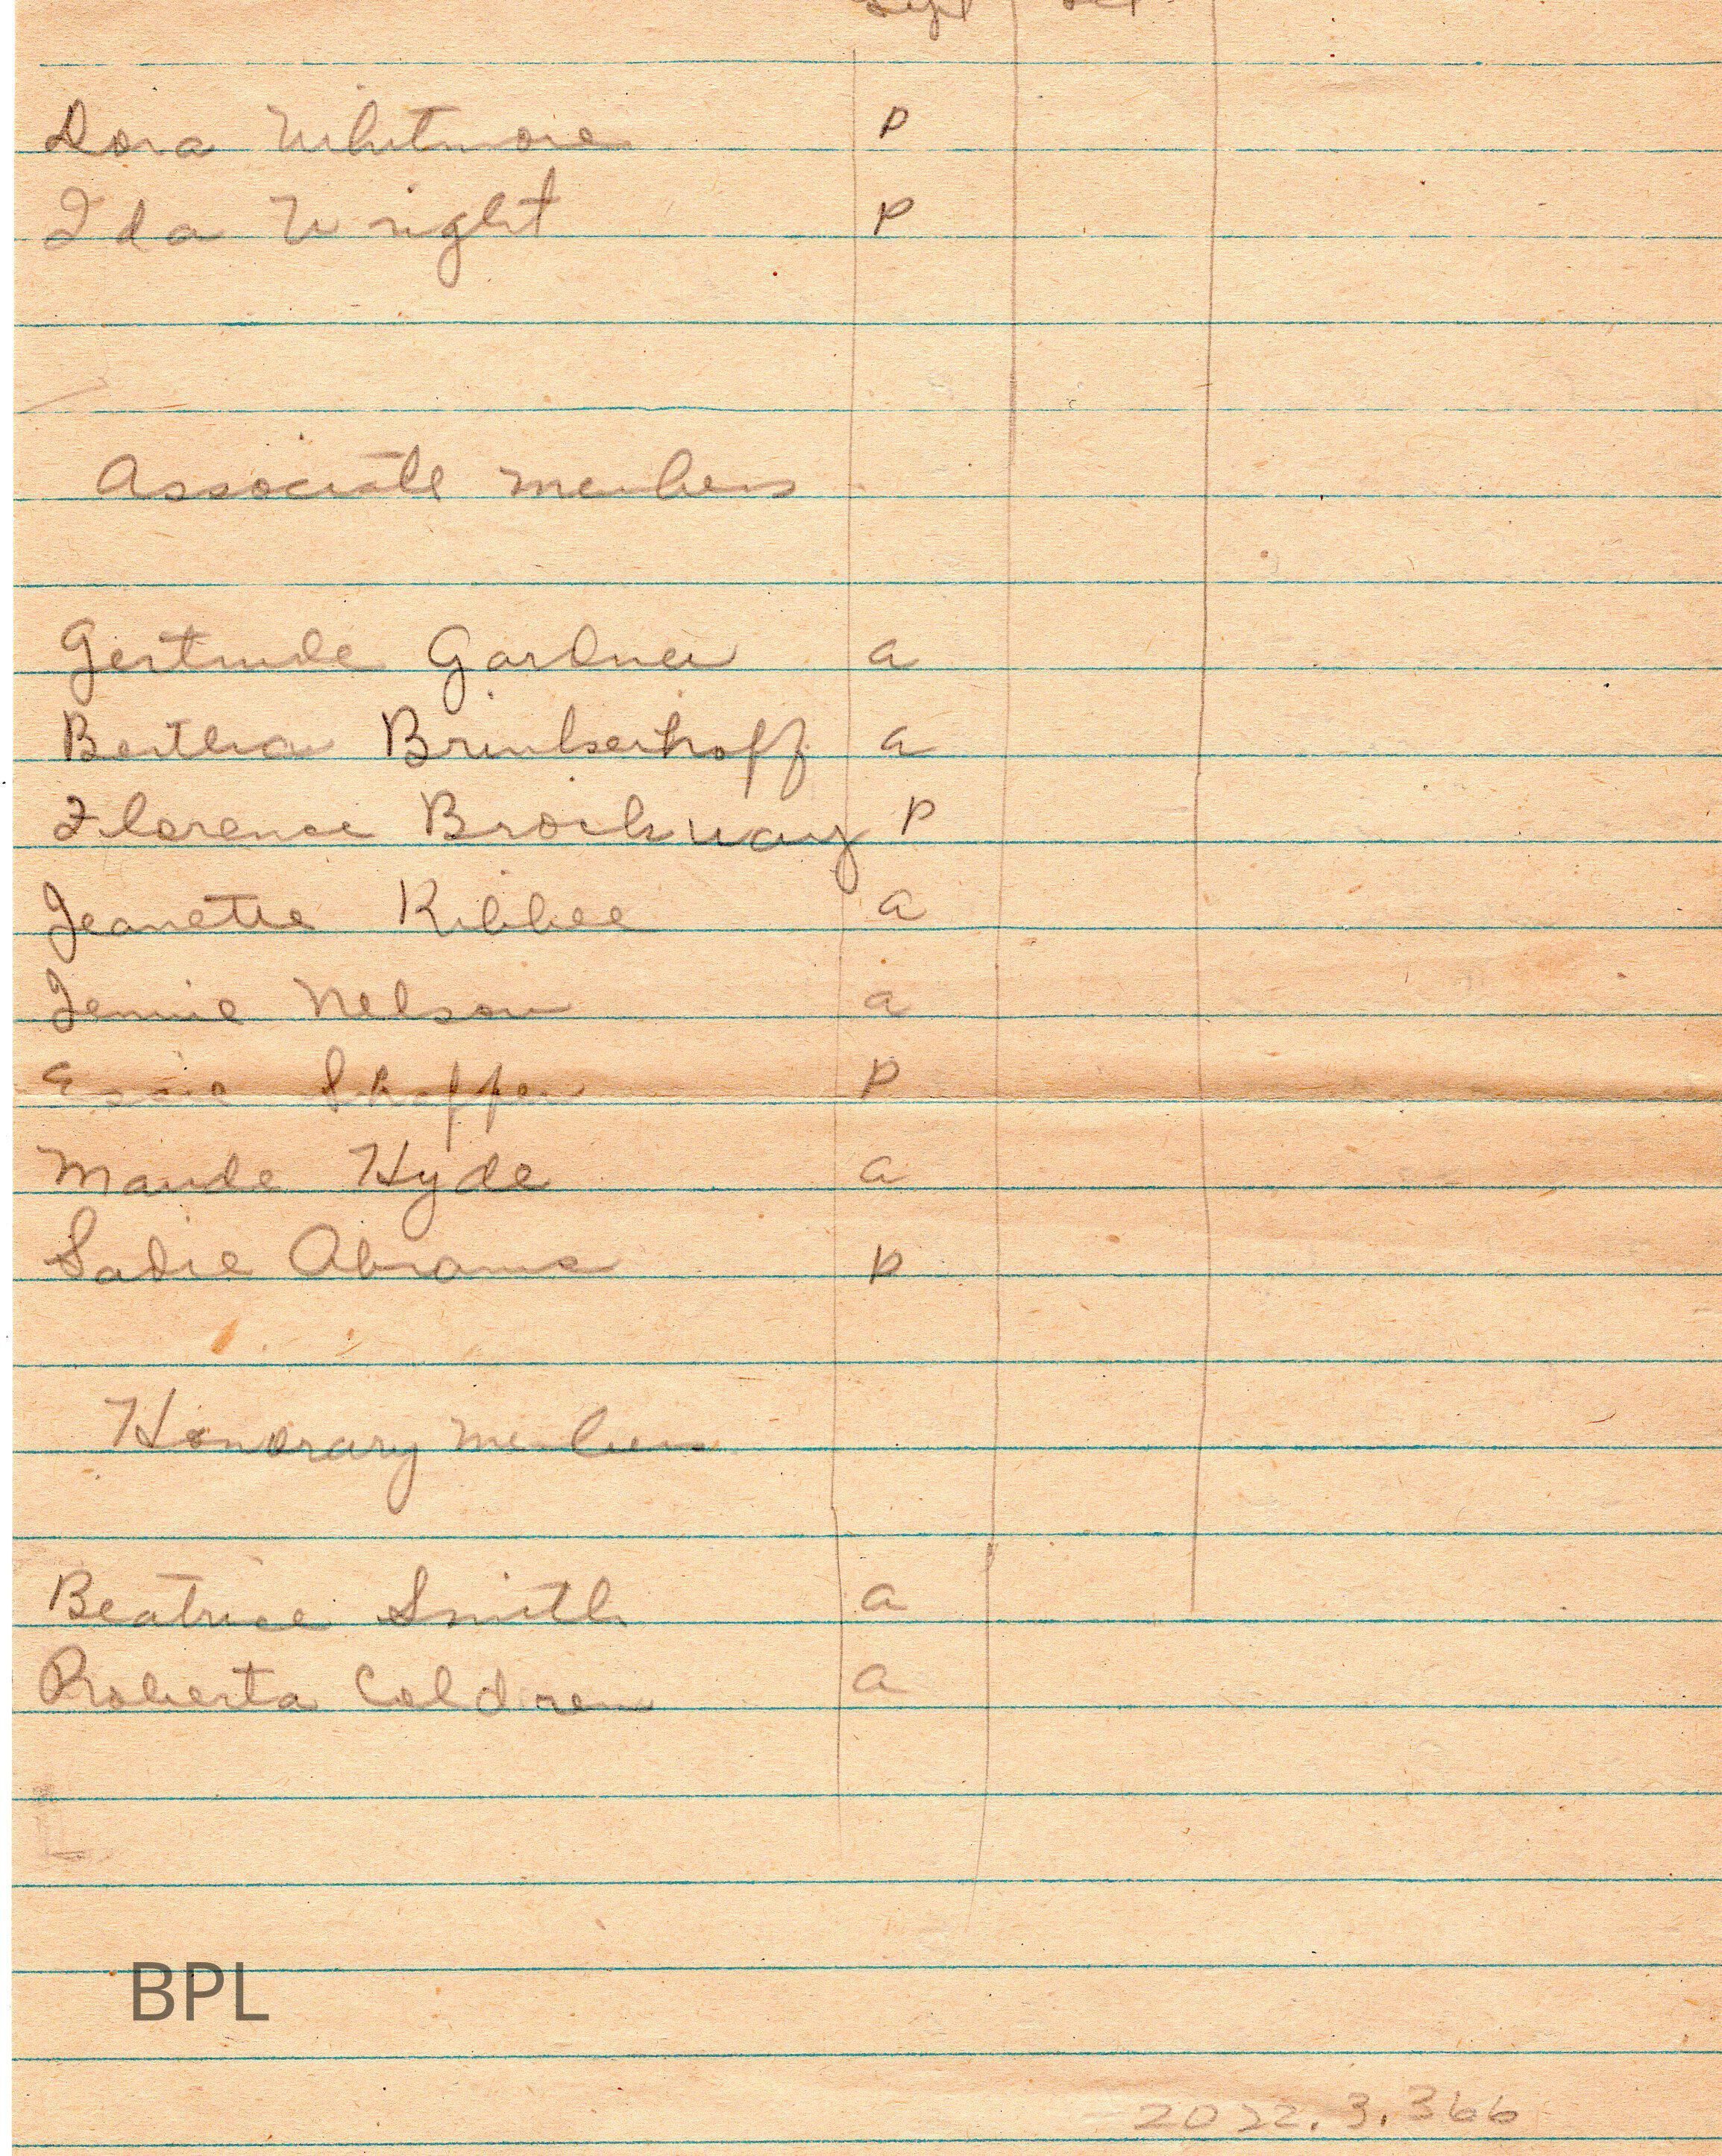 Sept Oct
Dora Whitmore P
Ida Wright P
Associate members
Gertrude Gardner a
Bertha Brinkerhoff a
Florence Brockway P
Jeanette Kibbee a
Jennie Nelson a
Essie Shaffer P
Maude Hyde a
Sadie Abrams P
Honorary members
Beatrice Smith a
Roberta Coldren a
BPL
2022.3.366